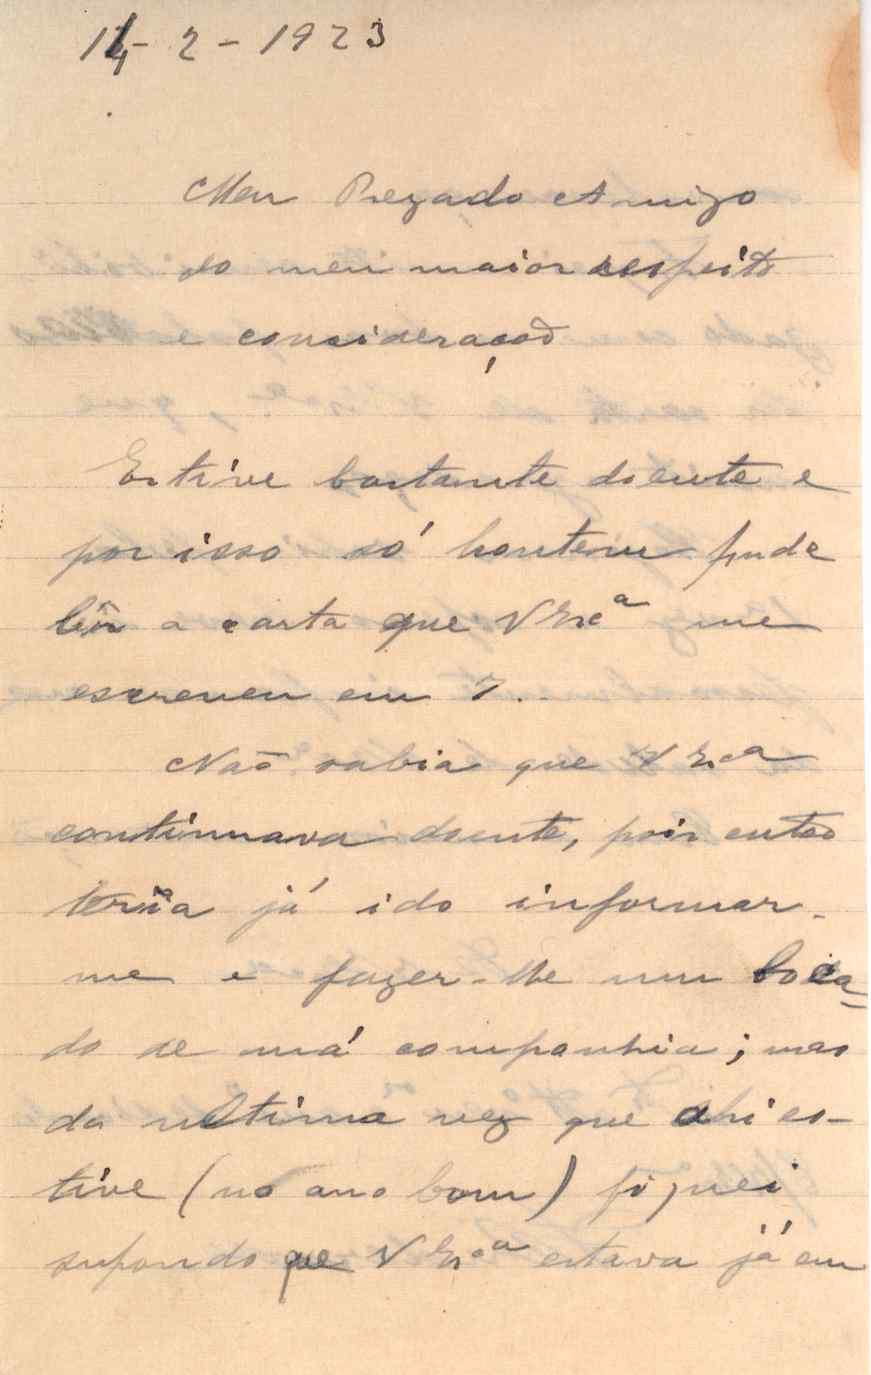 14-2-1923
Meu Prezado Amigo
do meu maior respeito
e consideração
Estive bastante doente e
por isso só hontem pude
lêr a carta que V Exª me
escreveu em 7.
Não sabia que V Exª
continuava doente, pois então
teria já ido informar-
me e fazer-lhe um boca-
do de má companhia; mas
da ultima vez que ahi es-
tive (no ano bom) fiquei
supondo que V Exª estava já em